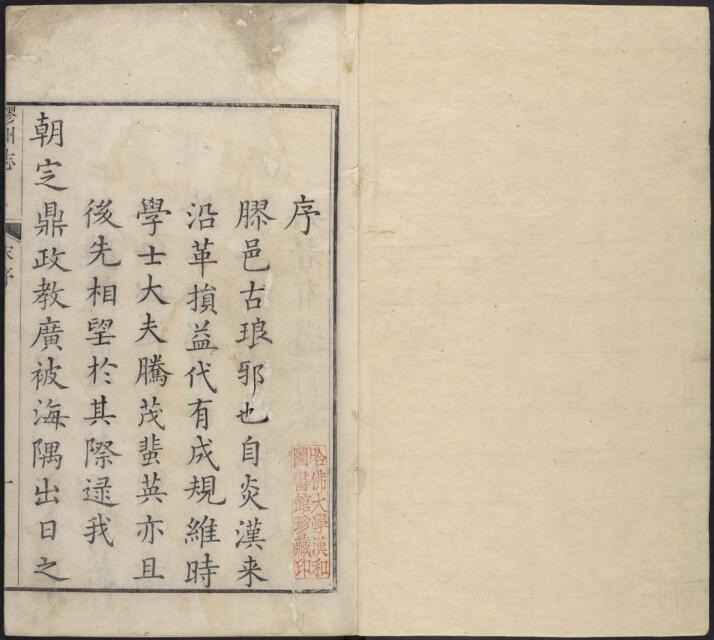 序
膠邑古琅邪也自炎漢来
沿革損益代有成規維時
學士大夫騰茂蜚英亦且
後先相望於其際逯我
朝㝎鼎政教廣被海隅出日之
膠州志
序
一
哈佛大學漢和
圖書館珍藏印